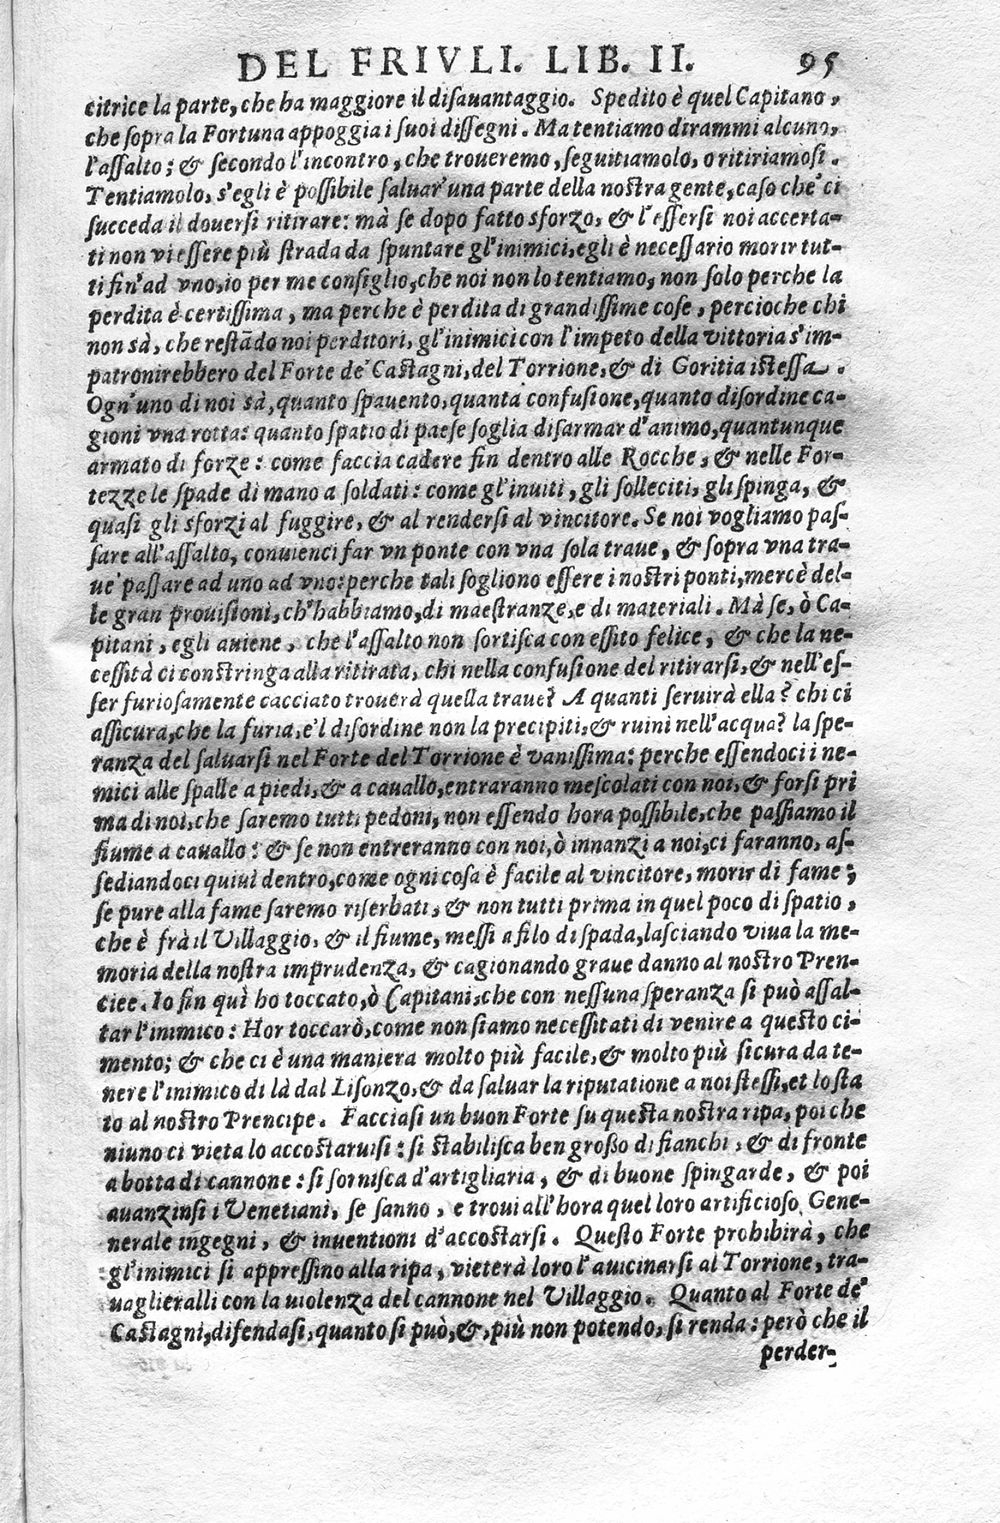 DEL FRIVLI. LIB. II. 95
citrice la parte, che ha maggiore il disauantaggio. Spedito è quel Capitano,
che sopra la Fortuna appoggia i suoi dissegni. Ma tentiamo dirammi alcuno,
l'assalto; & secondo l'incontro, che troueremo, seguitiamolo, o ritiriamosi.
Tentiamolo, s'egli è possibile saluar' una parte della nostra gente, caso che' ci
succeda il douersi ritirare: mà se dopo fatto sforzo, & l'essersi noi accerta-
ti non vi essere più strada da spuntare gl'inimici, egli è necessario morir tut-
ti fin' ad vno, io per me consiglio, che noi non lo tentiamo, non solo perche la
perdita è certissima, ma perche è perdita di grandissime cose, percioche chi
non sà, che restādo noi perditori, gl'inimici con l'impeto della vittoria s'im-
patronirebbero del Forte de' Castagni, del Torrione, & di Goritia istessa.
Ogn'uno di noi sà, quanto spauento, quanta confusione, quanto disordine ca-
gioni vna rotta: quanto spatio di paese soglia disarmar d'animo, quantunque
armato di forze: come faccia cadere fin dentro alle Rocche, & nelle For-
tezze le spade di mano a soldati: come gl'inuiti, gli solleciti, gli spinga, &
quasi gli sforzi al fuggire, & al rendersi al vincitore. Se noi vogliamo pas-
sare all'assalto, conuienci far vn ponte con vna sola traue, & sopra vna tra-
ue' passare ad uno ad vno: perche tali sogliono essere i nostri ponti, mercè del-
le gran prouisioni, ch'habbiamo, di maestranze, e di materiali. Mà se, ò Ca-
pitani, egli auiene, che l'assalto non sortisca con essito felice, & che la ne-
cessità ci constringa alla ritirata, chi nella confusione del ritirarsi, & nell'es-
ser furiosamente cacciato trouerà quella traue? A quanti seruirà ella? chi ci
assicura, che la furia, e'l disordine non la precipiti, & ruini nell'acqua? la spe-
ranza del saluarsi nel Forte del Torrione è vanissima: perche essendoci i ne-
mici alle spalle a piedi, & a cauallo, entraranno mescolati con noi, & forsi pri
ma di noi, che saremo tutti pedoni, non essendo hora possibile, che passiamo il
fiume a cauallo: & se non entreranno con noi, ò innanzi a noi, ci faranno, as-
sediandoci quiui dentro, come ogni cosa è facile al vincitore, morir di fame;
se pure alla fame saremo riserbati, & non tutti prima in quel poco di spatio,
che è frà il Villaggio, & il fiume, messi a filo di spada, lasciando viua la me-
moria della nostra imprudenza, & cagionando graue danno al nostro Pren-
ciee. Io fin quì ho toccato, ò Capitani, che con nessuna speranza si può assal-
tar l'inimico: Hor toccarò, come non siamo necessitati di venire a questo ci-
mento; & che ci è una maniera molto più facile, & molto più sicura da te-
nere l'inimico di là dal Lisonzo, & da saluar la riputatione a noi stessi, et lo sta
to al nostro Prencipe. Facciasi un buon Forte su questa nostra ripa, poi che
niuno ci vieta lo accostaruisi: si stabilisca ben grosso di fianchi, & di fronte
a botta di cannone: si fornisca d'artigliaria, & di buone spingarde, & poi
auanzinsi i Venetiani, se sanno, e troui all'hora quel loro artificioso Gene-
nerale ingegni, & inuentioni d'accostarsi. Questo Forte prohibirà, che
gl'inimici si appressino alla ripa, vieterà loro l'auicinarsi al Torrione, tra-
uaglieralli con la uiolenza del cannone nel Villaggio. Quanto al Forte de'
Castagni, difendasi, quanto si può, &, più non potendo, si renda: però che il
perder-